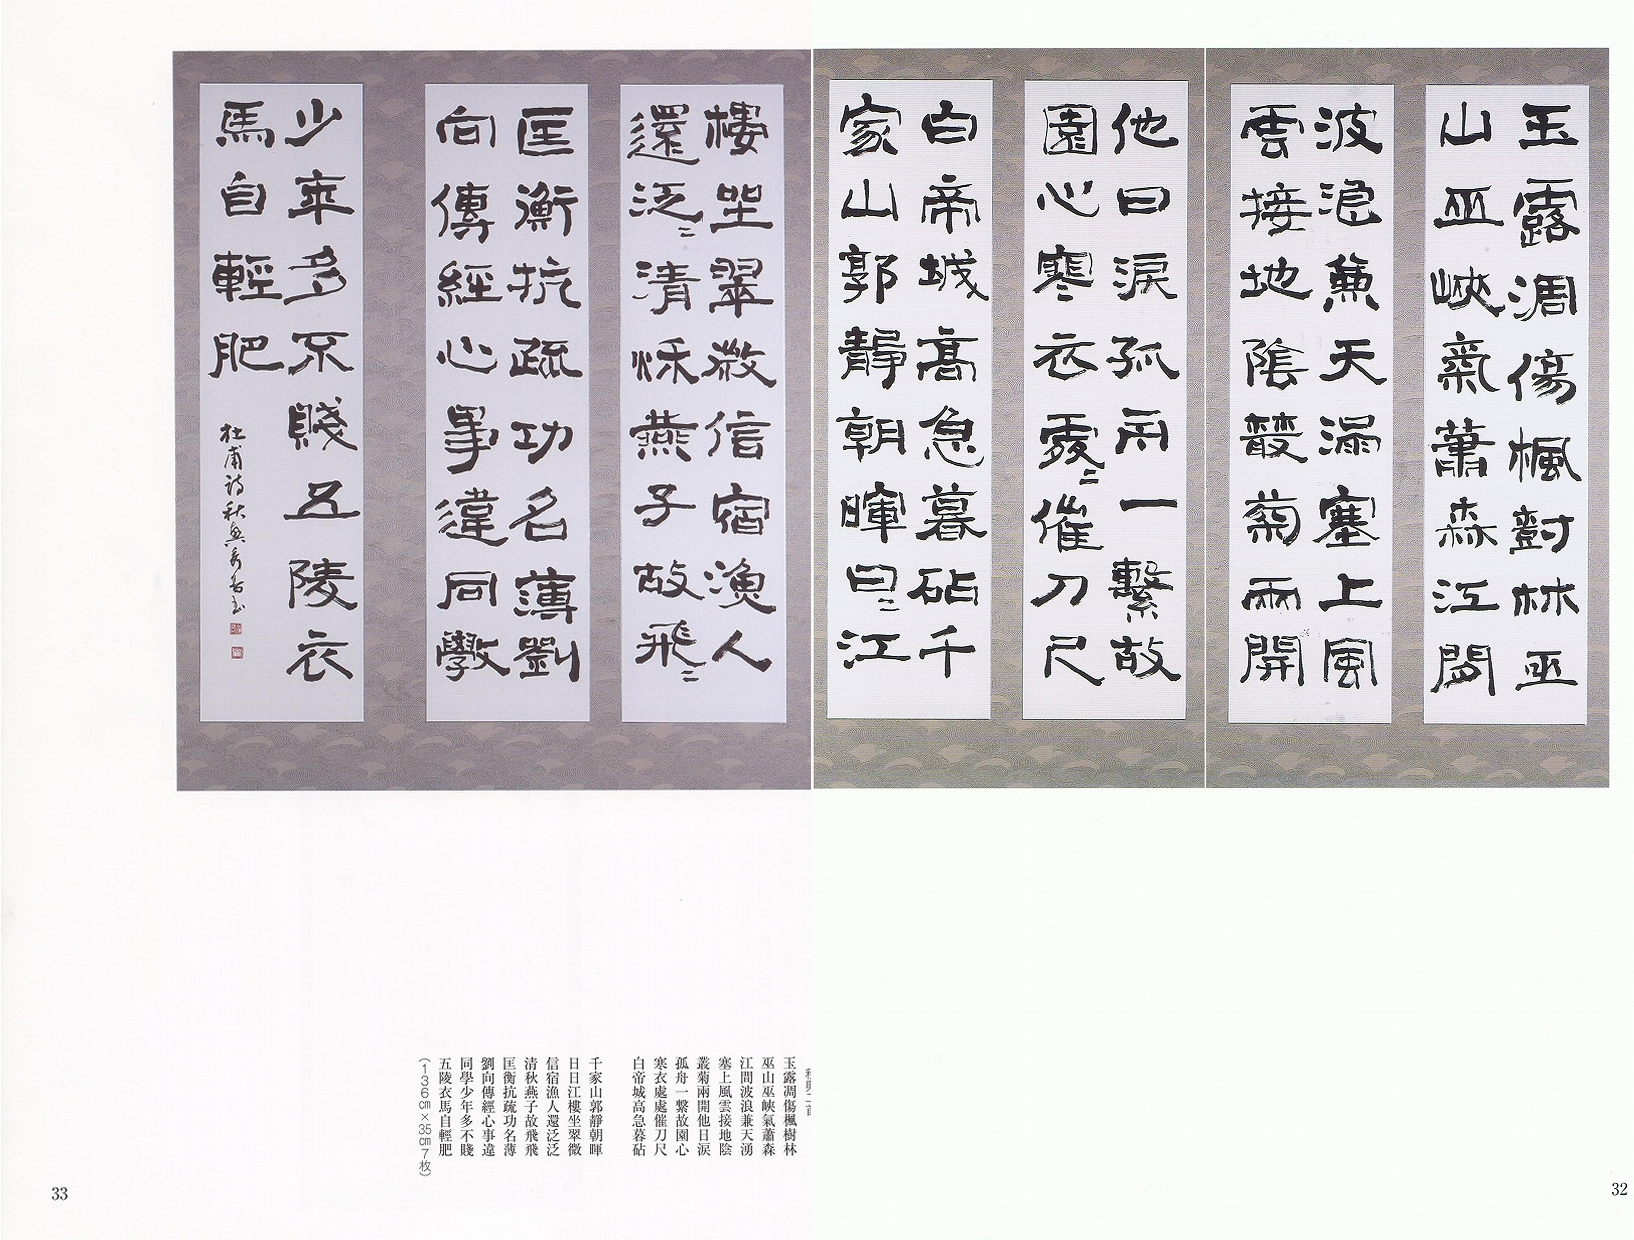 玉露凋傷楓樹林巫
山巫峽氣蕭森江間
波浪兼天湧塞上風
雲接地陰叢菊兩開
他日淚孤舟一繫故
園心寒衣處々催刀尺
白帝城高急暮砧千
家山郭靜朝暉日々江
樓坐翠微信宿漁人
還泛々清秋燕子故飛々
匡衡抗疏功名薄劉
向傳經心事違同學
少年多不賤五陵衣
馬自輕肥
杜甫詩秋興
玉露凋傷楓樹林
巫山巫峽氣蕭森
江間波浪兼天湧
塞上風雲接地陰
叢菊兩開他日淚
孤舟一繋故園心
寒衣處處催刀尺
白帝城高急暮砧
千家山郭靜朝暉
日日江樓坐翠微
信宿漁人還泛泛
清秋燕子故飛飛
匡衡抗疏功名薄
劉向傳經心事違
同學少年多不賤
五陵衣馬自輕肥
（136cm×35cm 7枚）
33
32